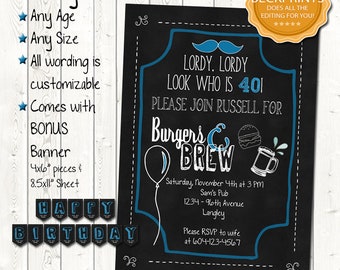 Any Age
Any Size
All wording is
customizable
Comes with
BONUS
Banner
4x6" pieces &
8.5x11" Sheet
HAPPY
BIRTHDAY
DOES ALL THE
EDITING FOR YOU!
LORDY, LORDY
LOOK WHO IS 40!
PLEASE JOIN RUSSELL FOR
Burgers &
BREW
Saturday, November 4th at 3 PM
Sam's Pub
1234 - 96th Avenue
Langley
Please RSVP to wife
at 604-123-4567